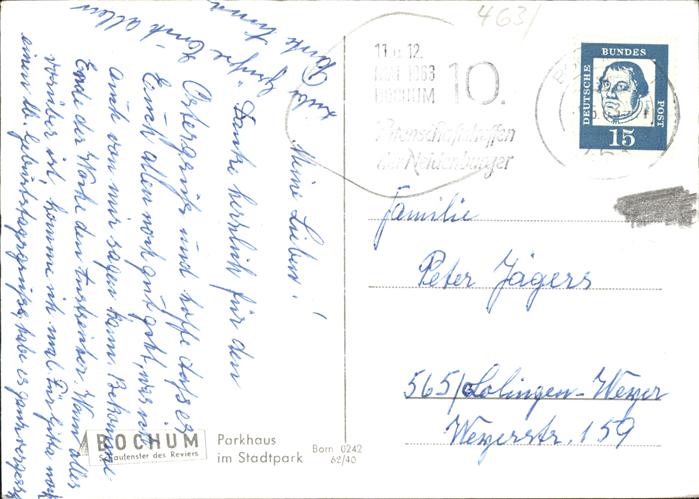 Meine Lieben!
Danke herzlich für den
Ostergruß und hoffe daß es
Euch allen noch gut geht, was ich
auch von mir sagen kann. Bekomme
Ende der Woche den Anstreicher. Wenn alles
vorüber ist, komme ich mal. Für
einen lb. Geburtstagsgrüße, habe es ganz vergessen
Liebe Grüße Euch allen
Tante Anna
463/
11. u. 12.
MAI 1963
BOCHUM
10.
Patenschaftstreffen
der Neidenburger
DEUTSCHE
BUNDES
POST
15
Familie
Peter Jägers
565/Solingen-Weyer
Weyerstr. 159
BOCHUM
Schaufenster des Reviers
Parkhaus
im Stadtpark
Bom 0242
62/40